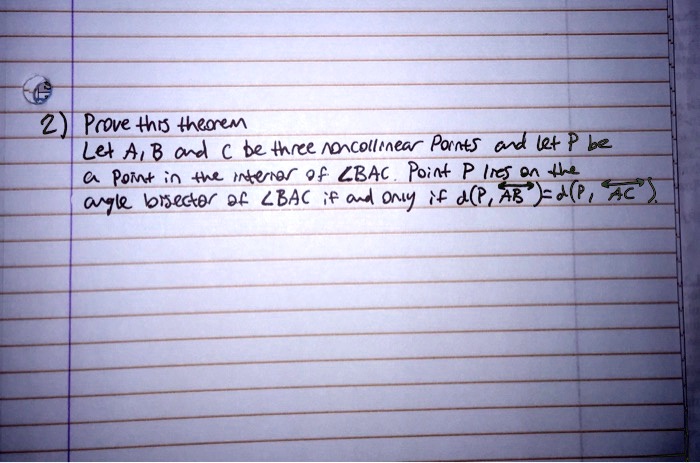 2) Prove this theorem
Let A, B and C be three noncollinear Points and let P be
a Point in the interior of ∠BAC. Point P lies on the
angle bisector of ∠BAC if and only if d(P, \overleftrightarrow{AB})=d(P, \overleftrightarrow{AC}).